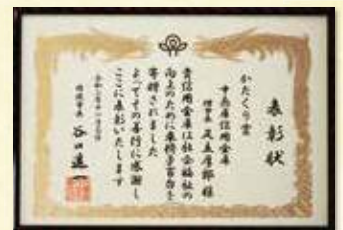 表彰状
かたくり会
中兵庫信用金庫
理事長 足立厚郎 様
貴信用金庫は社会福祉の
向上のために車椅子百台を
寄贈されました
よってその善行に感謝し
ここに表彰いたします
谷口進一